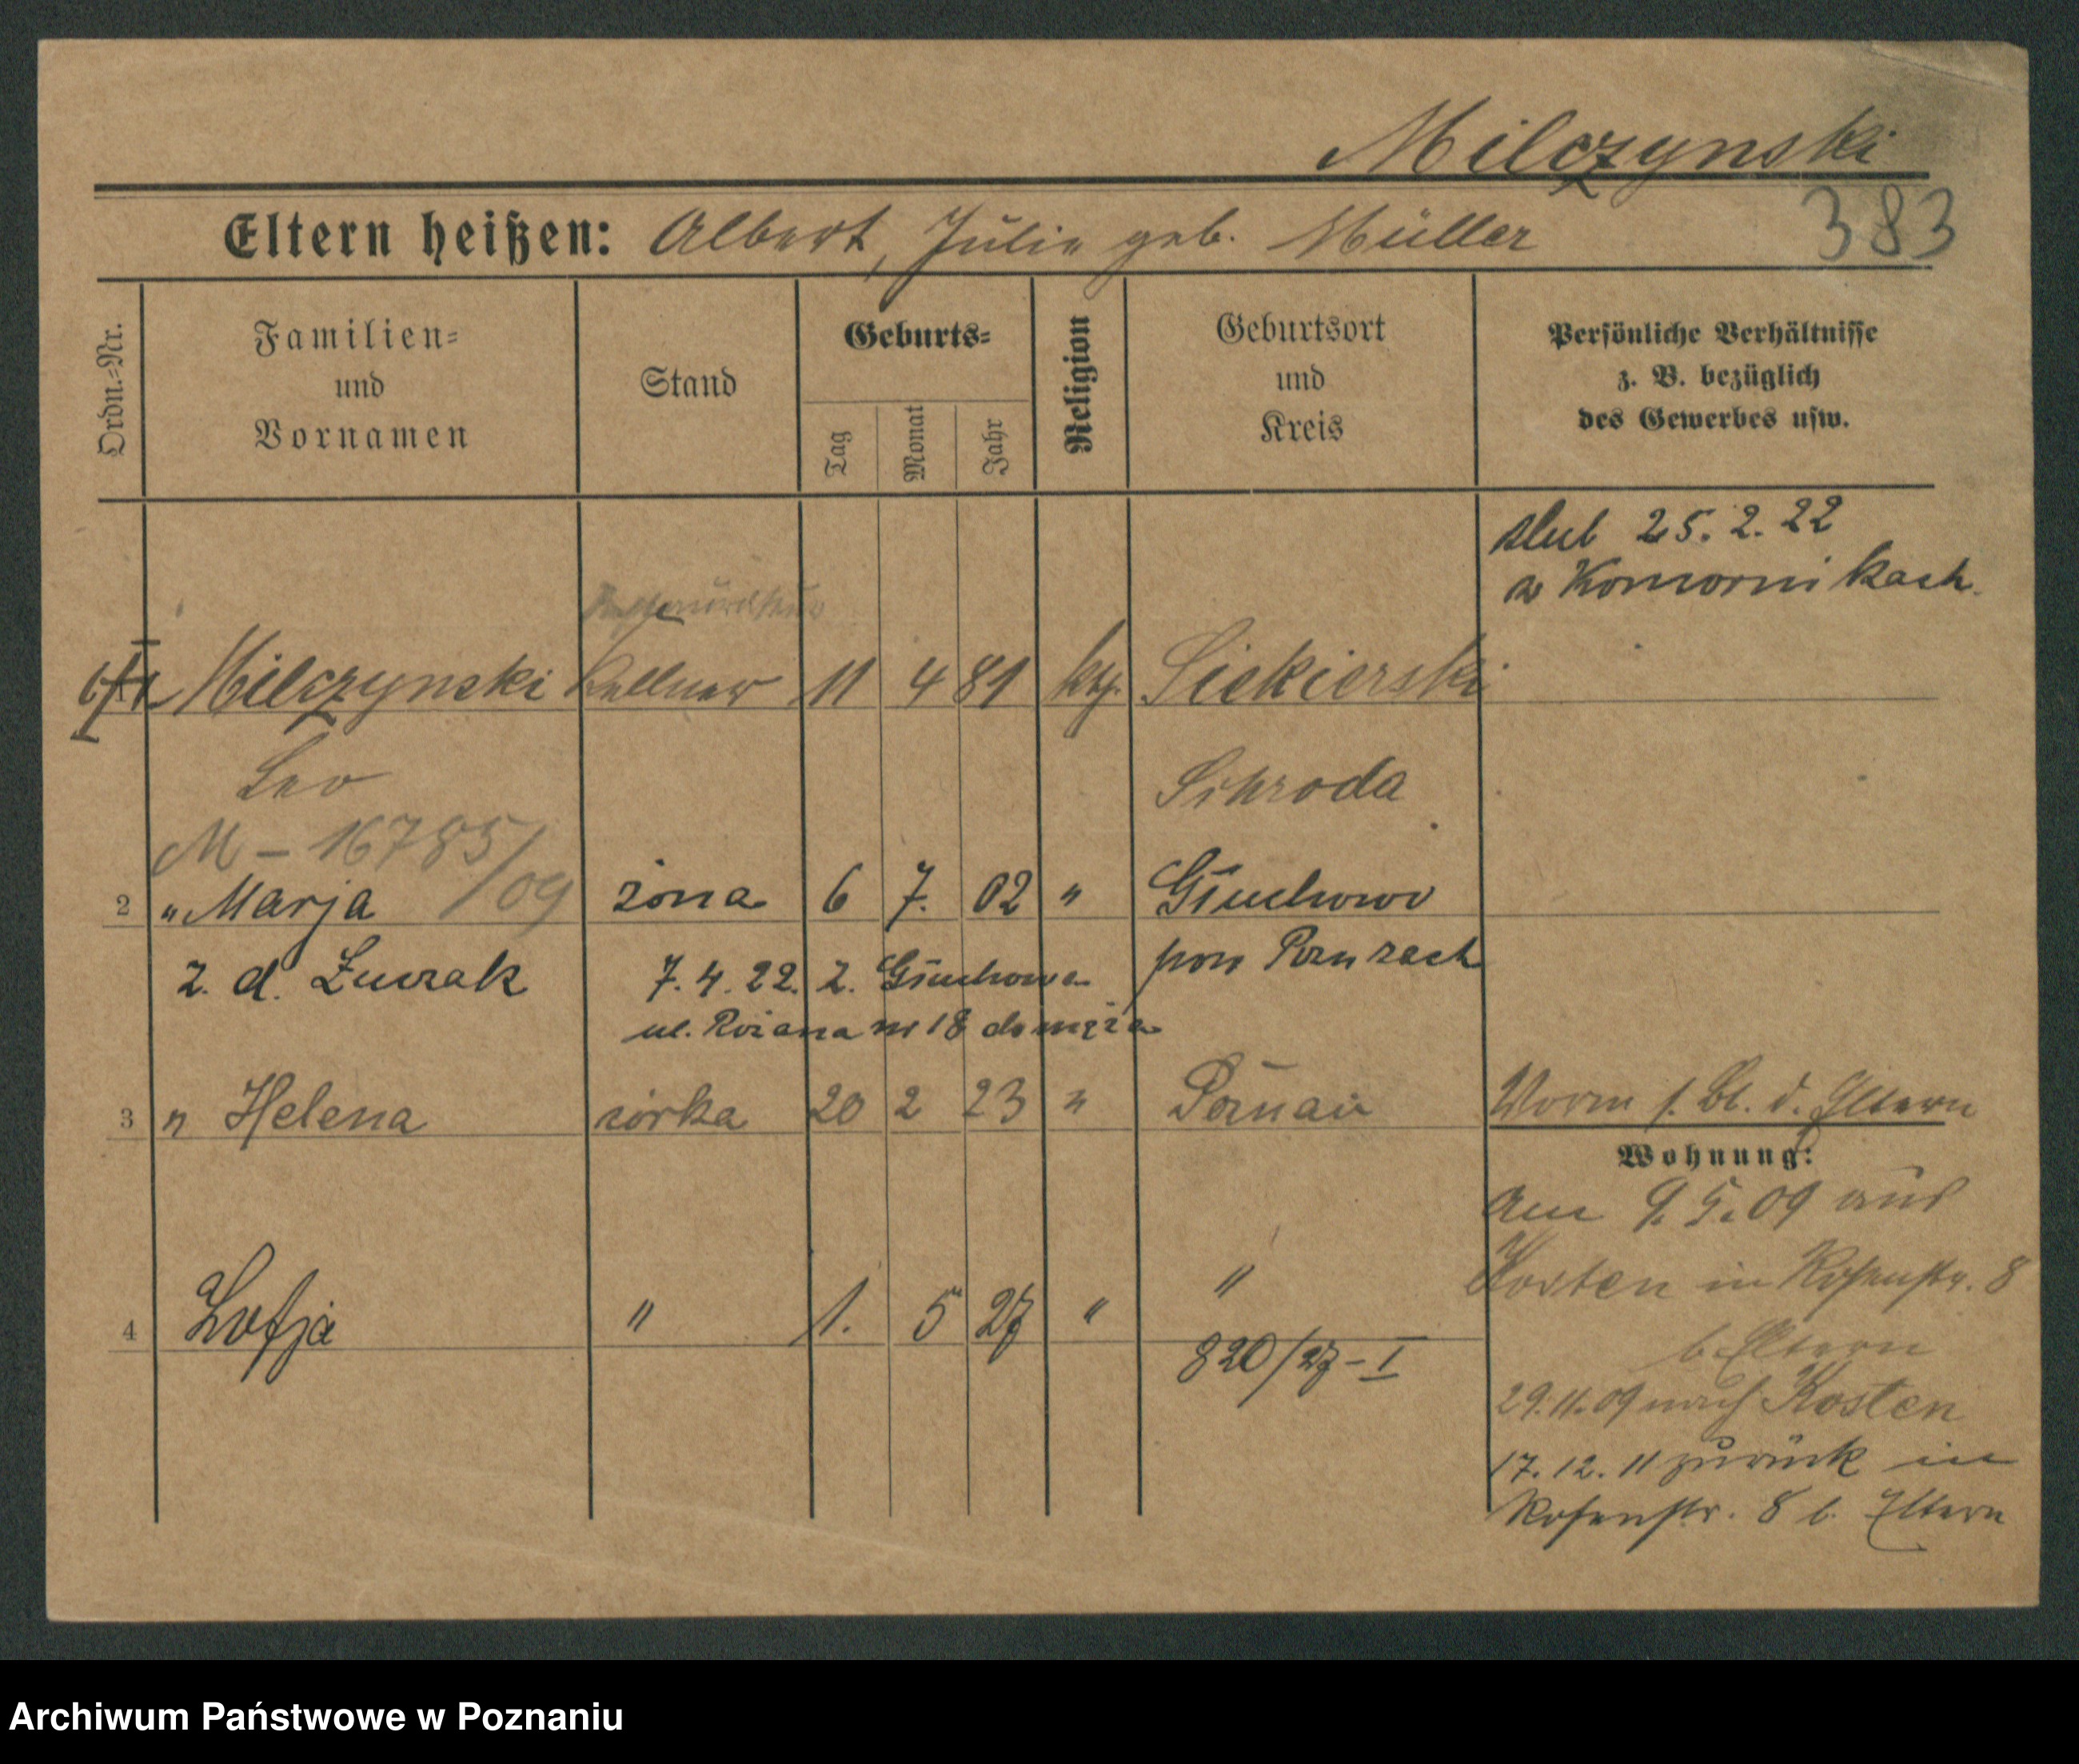 Milczynski
383
Eltern heißen: Albert, Julie geb. Müller
Ordn.-Nr.
Familien-
und
Vornamen
Stand
Geburts-
Tag
Monat
Jahr
Religion
Geburtsort
und
Kreis
Persönliche Verhältnisse
z. B. bezüglich
des Gewerbes usw.
slub 25. 2. 22
w Komornikach.
Milczynski Kellner 11 4 81 ktg. Siekierski
Leo Schroda
M - 16785/09
2 " Marja żona 6 7. 02 " Głuchowo
z. d. Żuczak 7. 4. 22. z. Głuchowa pow Pozn zach
ul. Różana nr 18 do męża
3 " Helena córka 20 2 23 " Poznań
Vorm s. Bl. d. Eltern
Wohnung:
am 9. 5. 09 aus
Kosten in Rosenstr. 8
b. Eltern
4 Zofja " 1. 5 27 " "
820/27 - I
29. 11. 09 nach Kosten
17. 12. 11 zurück in
Rosenstr. 8 b. Eltern
Archiwum Państwowe w Poznaniu